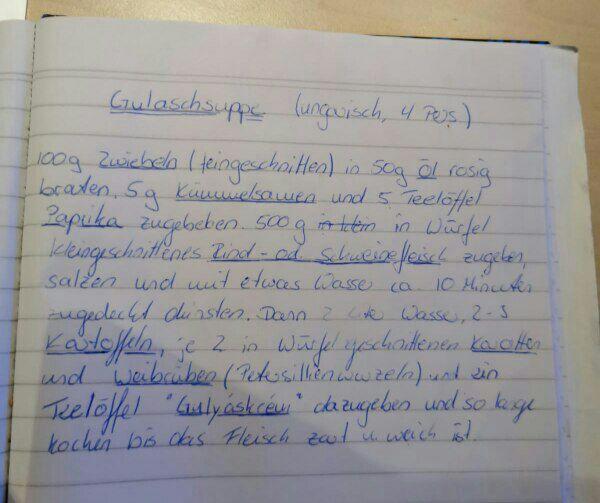 Gulaschsuppe (ungarisch, 4 Pers.)
100g Zwiebeln (feingeschnitten) in 50g Öl rosig
braten. 5g Kümmelsamen und 5 Teelöffel
Paprika zugebeben. 500g in klein in Würfel
kleingeschnittenes Rind- od. Schweinefleisch zugeben,
salzen und mit etwas Wasser ca. 10 Minuten
zugedeckt dünsten. Dann 2 Liter Wasser, 2-3
Kartoffeln, je 2 in Würfel geschnittenen Karotten
und Weißrüben (Petersilienwurzeln) und ein
Teelöffel "Gulyáskrém" dazugeben und so lange
kochen bis das Fleisch zart u. weich ist.